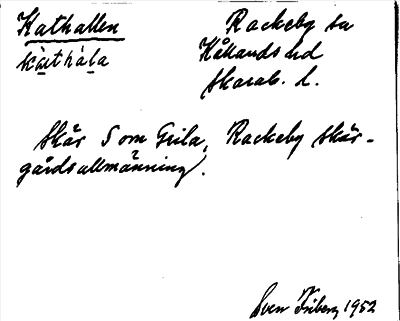 Kathallen Rackeby sn
kàthála Kållands hd
Skarab. l.
Skär S om Gula, Rackeby skär-
gårdsallmänning.
Sven Friberg 1952